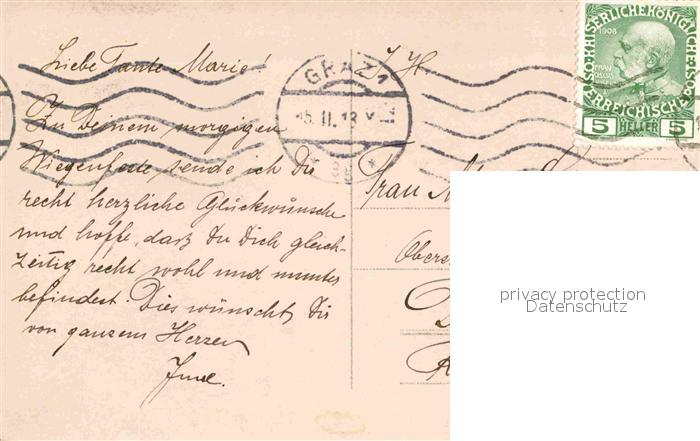 Liebe Tante Marie!
Zu Deinem morgigen
Wiegenfeste sende ich Dir
recht herzliche Glückwünsche
und hoffe, daß Du Dich gleich-
zeitig recht wohl und munter
befindest. Dies wünscht Dir
von ganzem Herzen
GRAZ 1
15. II. 13
Frau
Obers
KAISERLICHE KÖNIGLICHE
ÖSTERREICHISCHE POST
1908
5 HELLER 5
privacy protection
Datenschutz